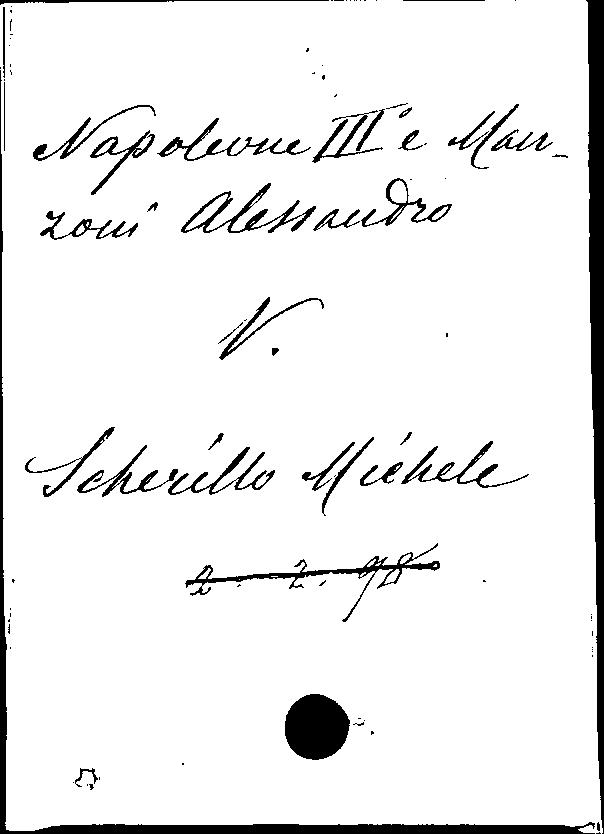 Napoleone III e Man-
zoni Alessandro
V.
Scherillo Michele
2. 2. 98